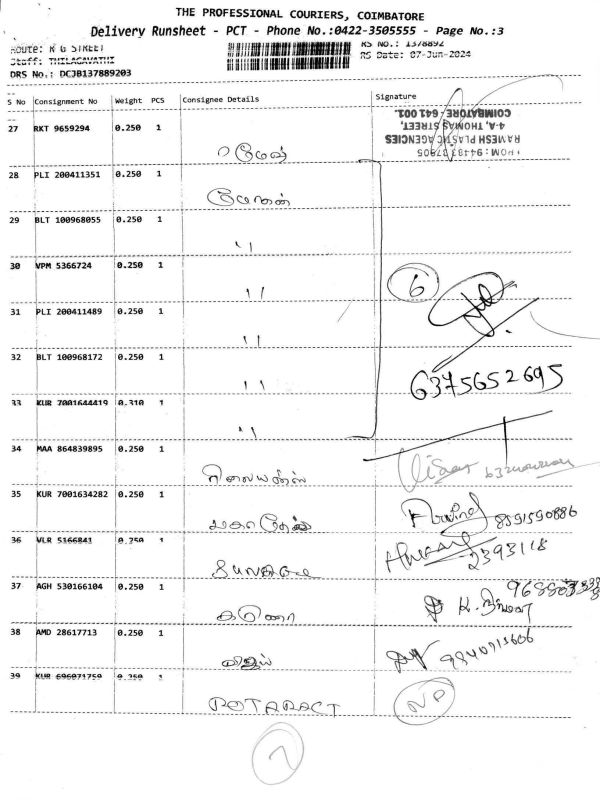 THE PROFESSIONAL COURIERS, COIMBATORE
Delivery Runsheet - PCT - Phone No.:0422-3505555 - Page No.:3
Route: R G STREET
RS No.: 1378892
Staff: THILAGAVATHI
RS Date: 07-Jun-2024
DRS No.: DCJB137889203
S No Consignment No Weight PCS Consignee Details Signature
27 RKT 9659294 0.250 1 ரமேஷ்
RAMESH PLASTIC AGENCIES
4-A, THOMAS STREET,
COIMBATORE - 641 001.
28 PLI 200411351 0.250 1
29 BLT 100968055 0.250 1 "
30 VPM 5366724 0.250 1 "
6
31 PLI 200411489 0.250 1 "
32 BLT 100968172 0.250 1 "
6375652695
33 KUR 7001644419 0.310 1 "
34 MAA 864839895 0.250 1
35 KUR 7001634282 0.250 1 Arvind 8591590886
36 VLR 5166841 0.250 1 2393118
37 AGH 530166104 0.250 1
38 AMD 28617713 0.250 1
39 KUR 696071759 0.250 1 ROTARACT NP
2